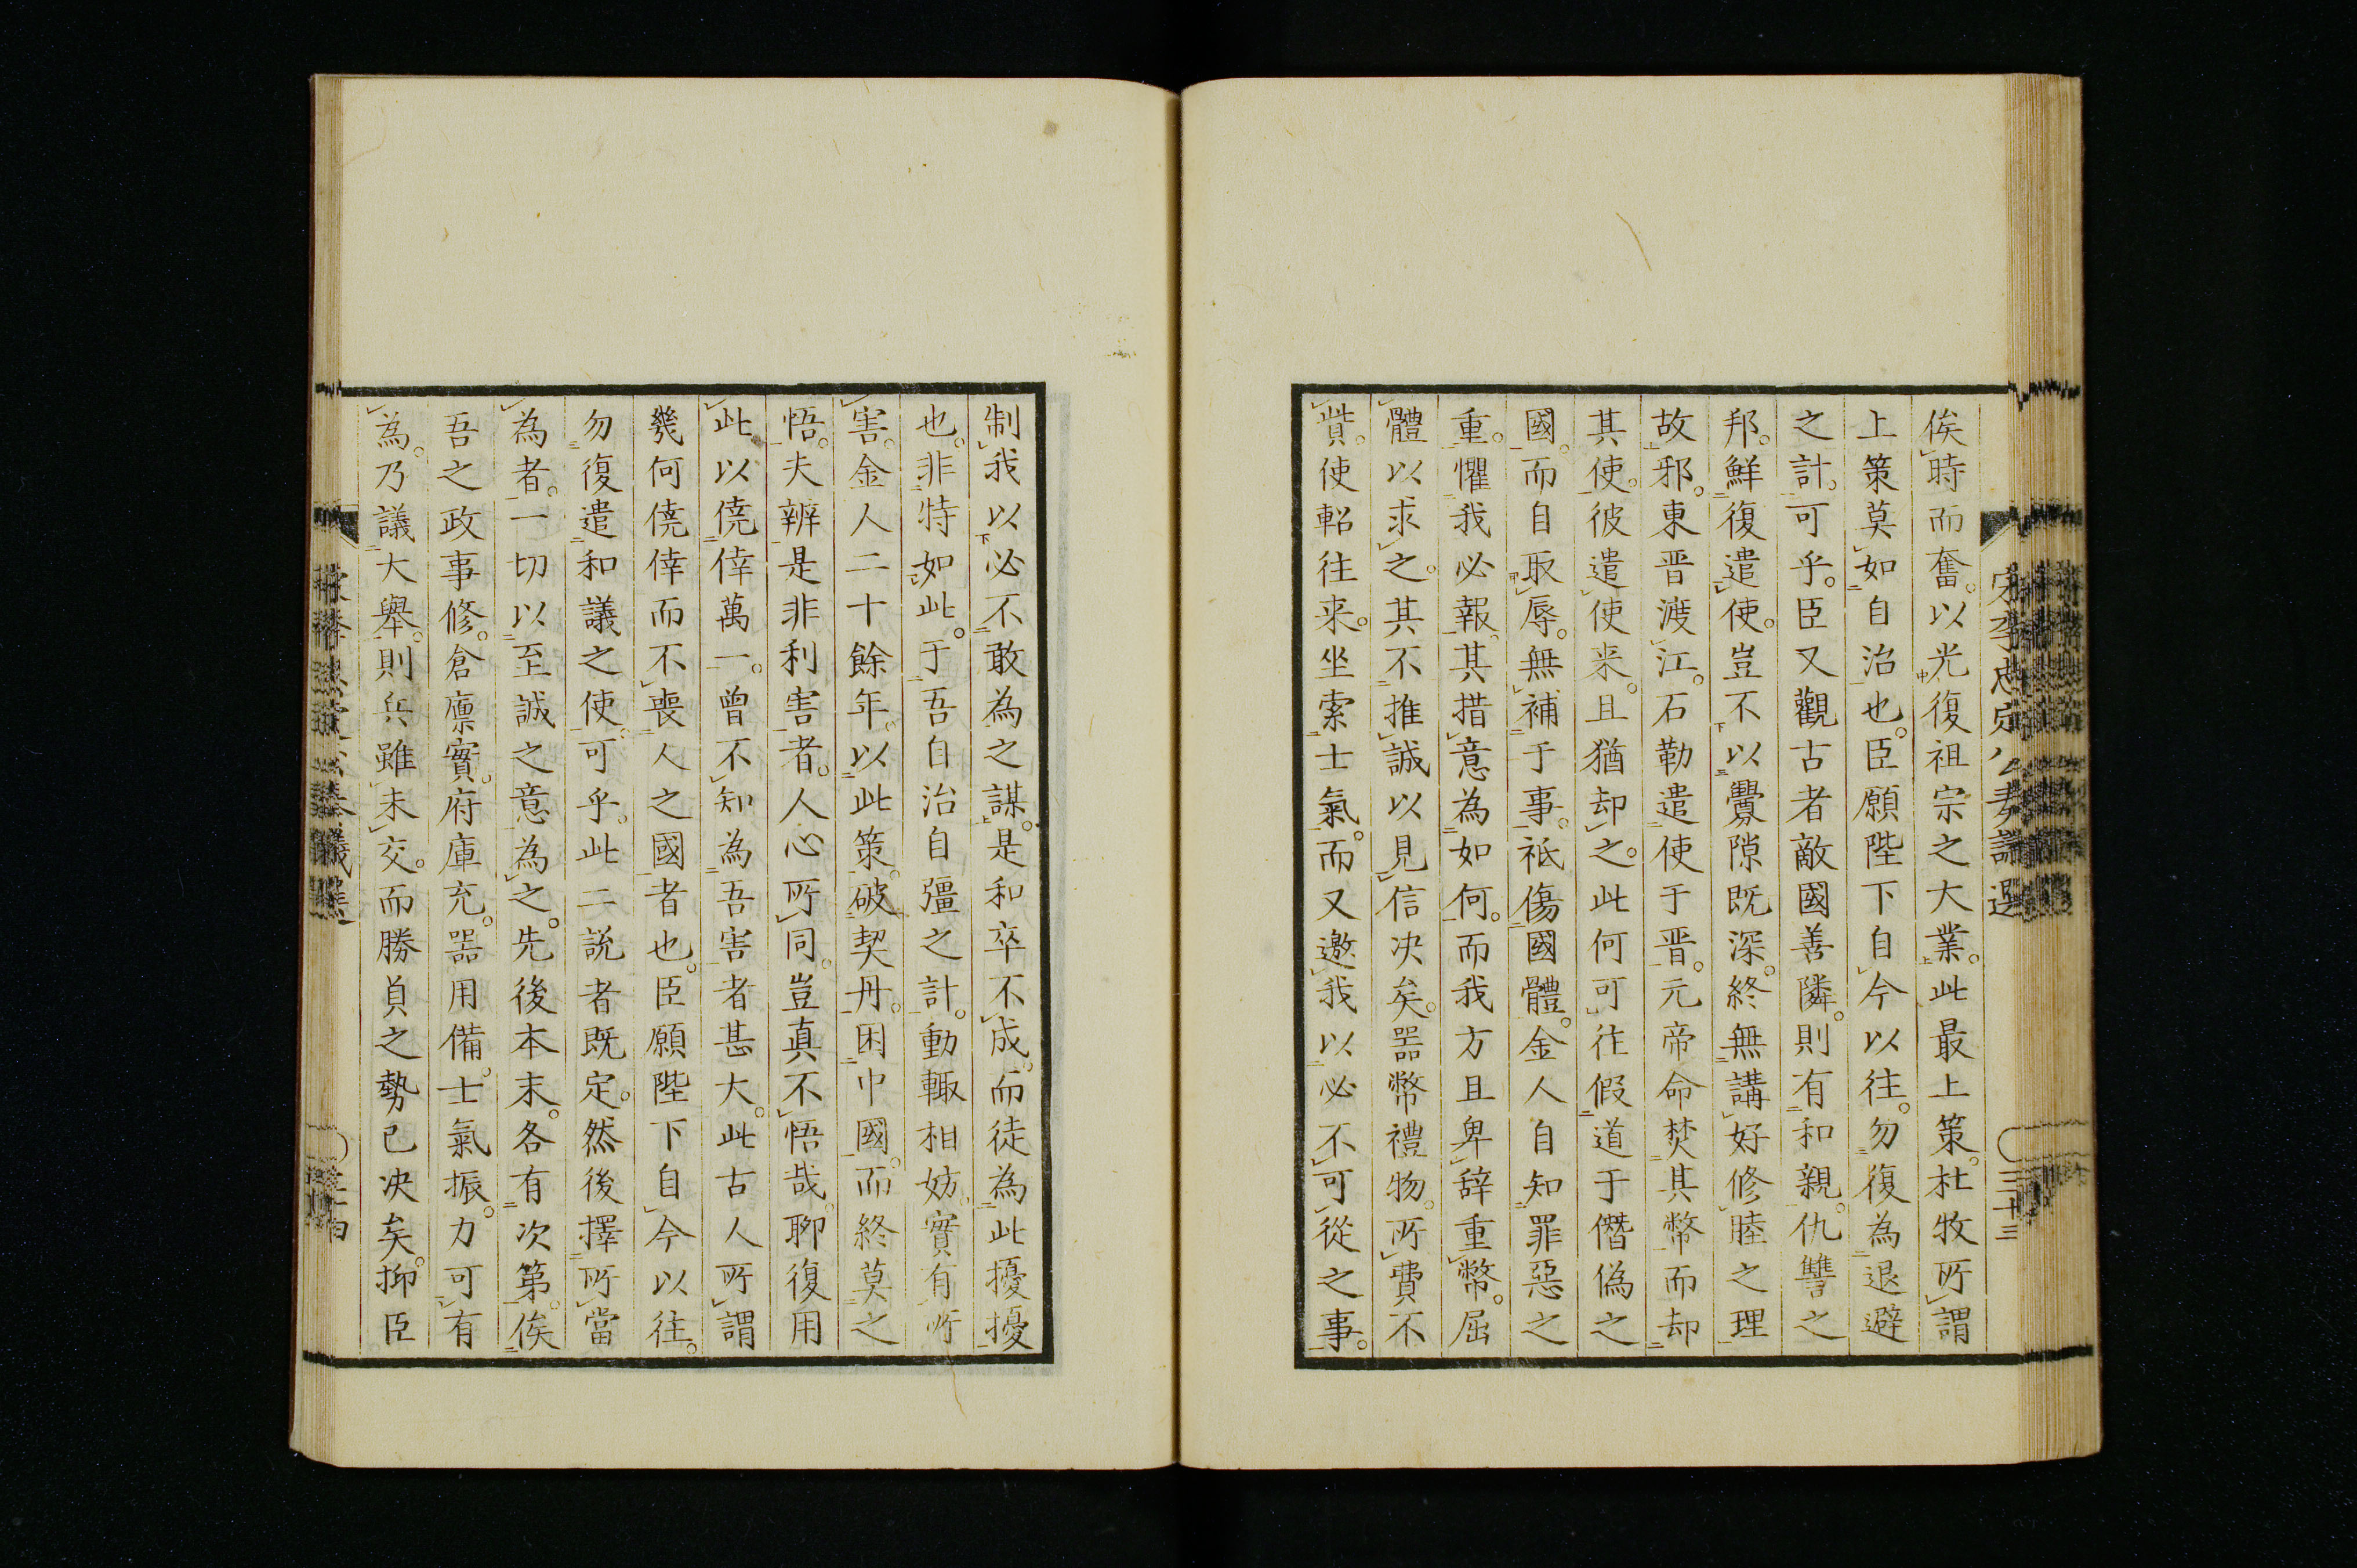 俟時而奮。以光復祖宗之大業。此最上策。杜牧所謂
上策莫如自治也。臣願陛下自今以往。勿復為退避
之計。可乎。臣又觀古者敵國善隣。則有和親。仇讐之
邦。鮮復遣使。豈不以釁隙既深。終無講好修睦之理
故邪。東晋渡江。石勒遣使于晋。元帝命焚其幣而却
其使。彼遣使来。且猶却之。此何可往假道于僭偽之
國。而自取辱。無補于事。祇傷國體。金人自知罪惡之
重。懼我必報。其措意為如何。而我方且卑辞重幣。屈
體以求之。其不推誠以見信决矣。噐幣禮物。所費不
貲。使軺往来。坐索士氣。而又邀我以必不可從之事。
制我以必不敢為之謀。是和卒不成。而徒為此擾擾
也。非特如此。于吾自治自彊之計。動輙相妨。實有所
害。金人二十餘年。以此策。破契丹。困中國。而終莫之
悟。夫辨是非利害者。人心所同。豈真不悟哉。聊復用
此以僥倖萬一。曾不知為吾害者甚大。此古人所謂
幾何僥倖而不喪人之國者也。臣願陛下自今以往。
勿復遣和議之使。可乎。此二説者既定。然後擇所當
為者。一切以至誠之意為之。先後本末。各有次第。俟
吾之政事修。倉廪實。府庫充。噐用備。士氣振。力可有
為。乃議大舉。則兵雖未交。而勝負之勢已决矣。抑臣
宋李忠定公奏議選
三十三